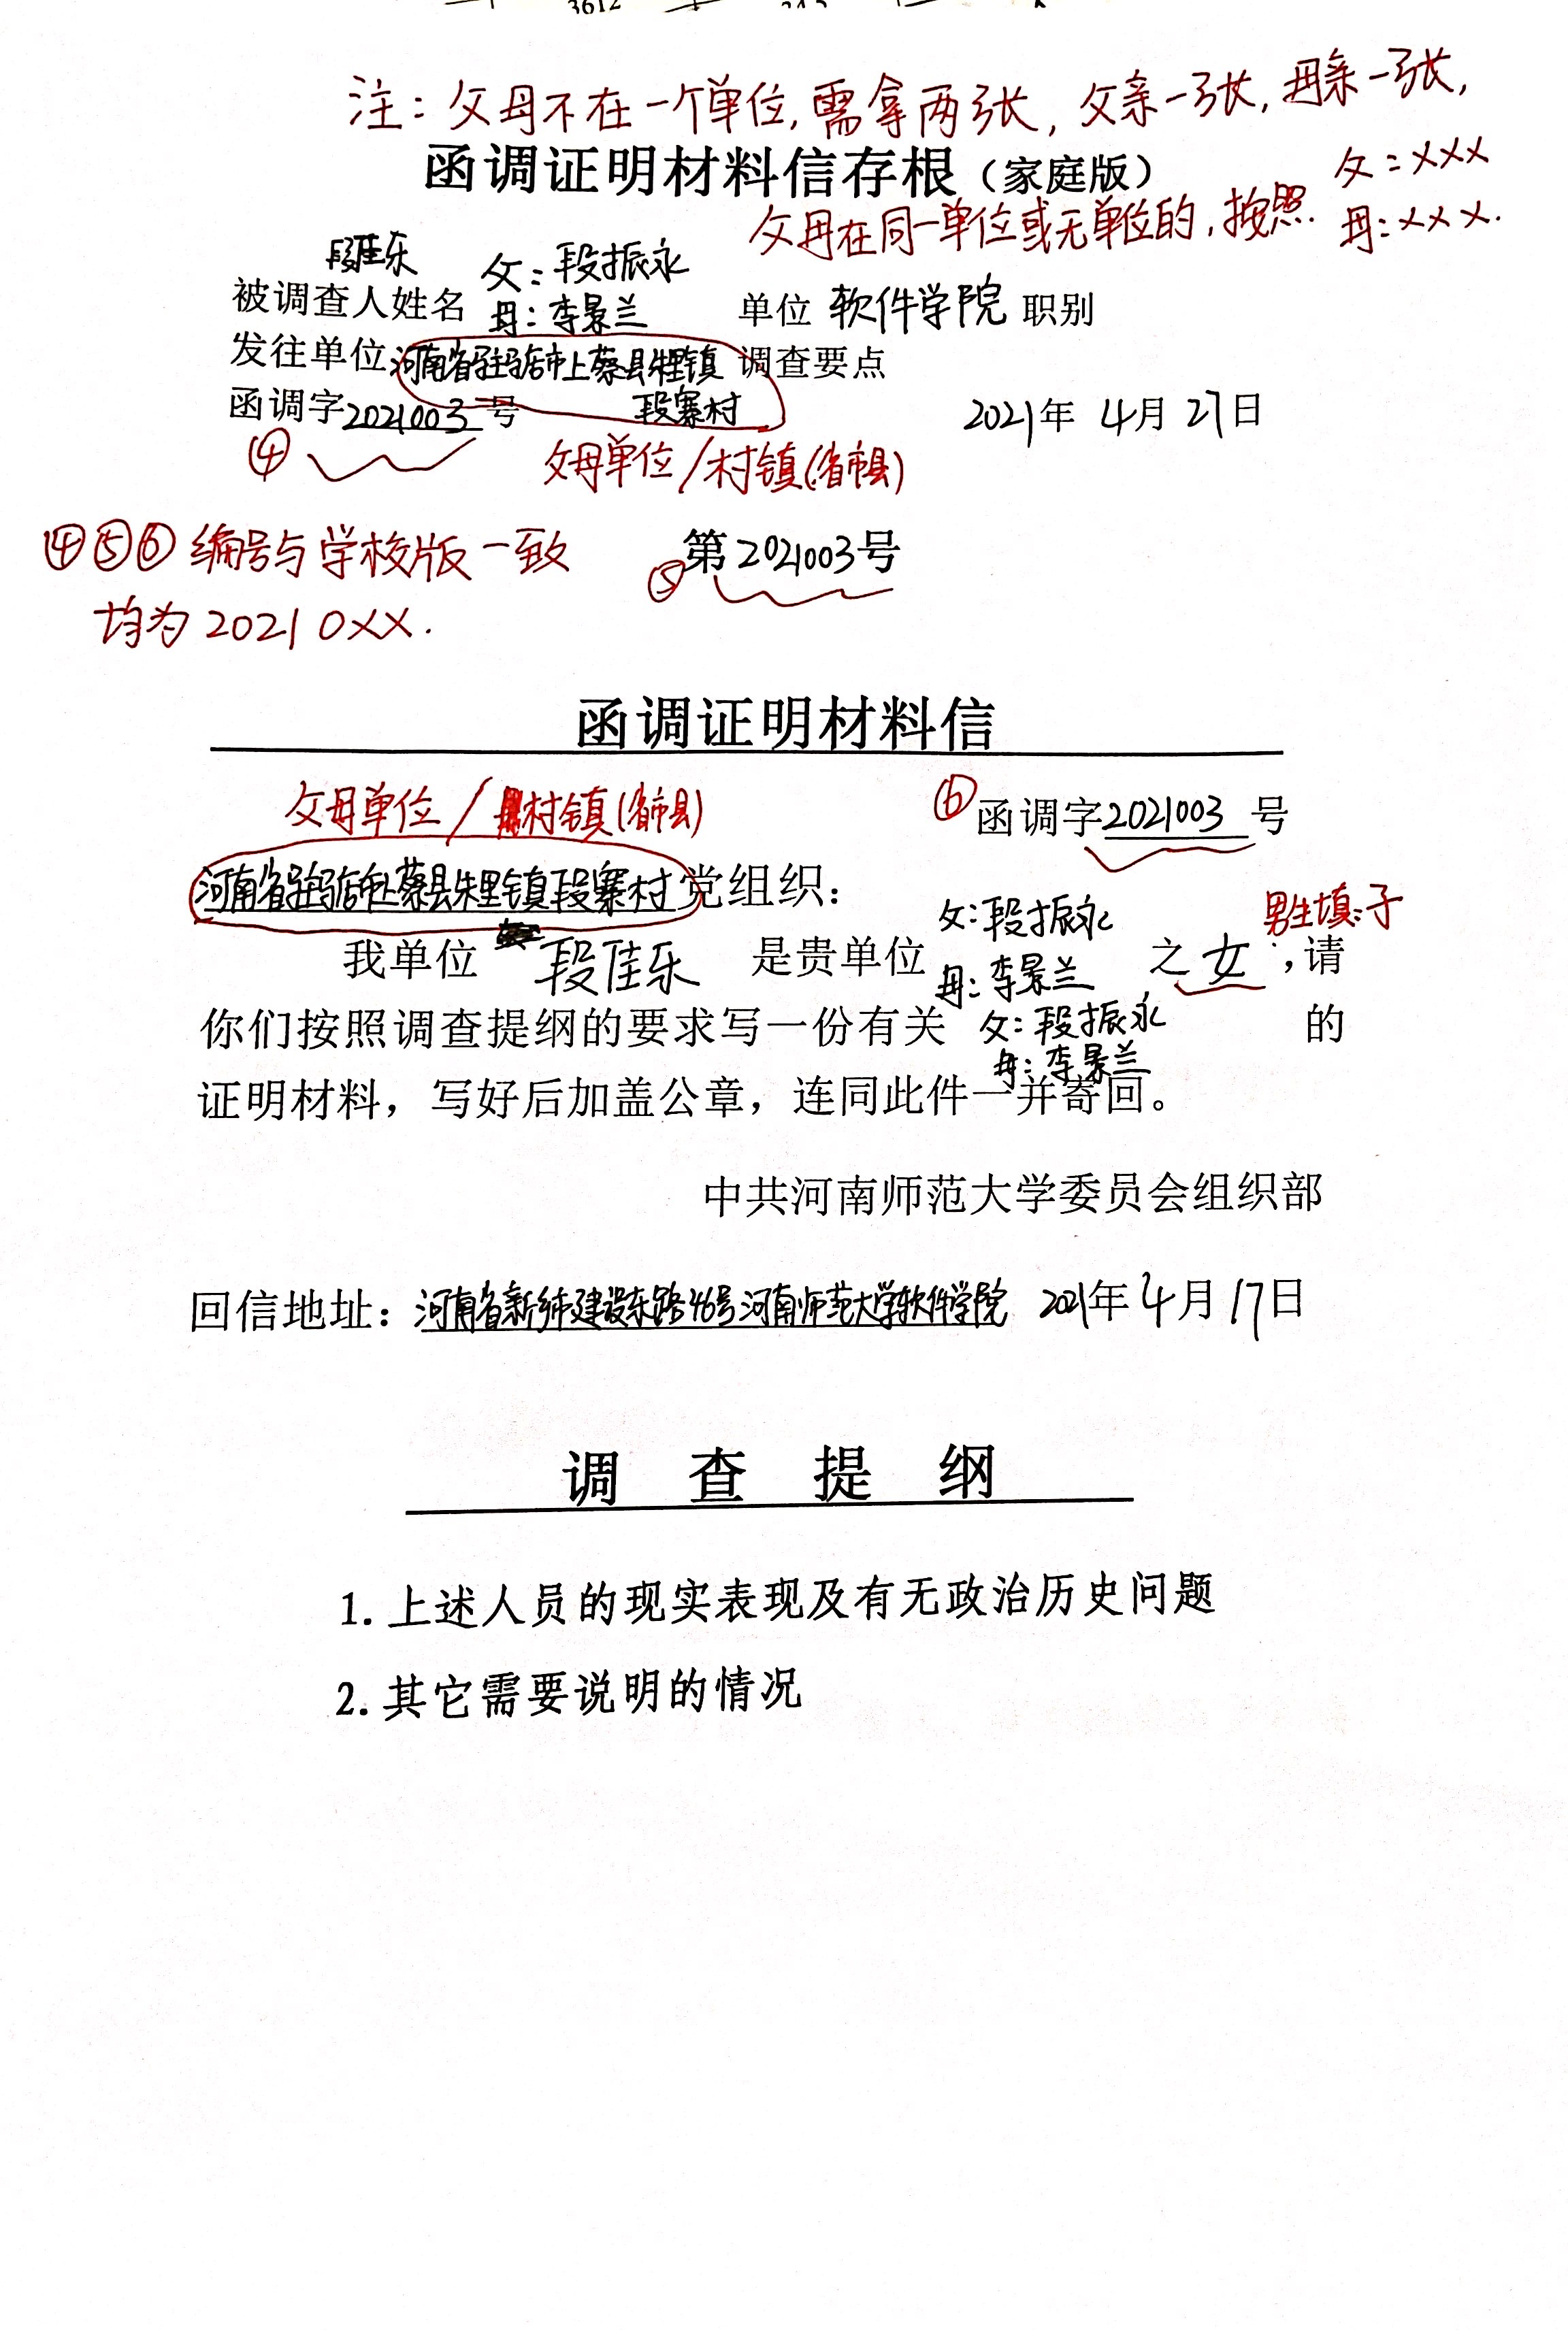 3612
注：父母不在一个单位，需拿两张，父亲一张，母亲一张，
函调证明材料信存根（家庭版）
父：×××
父母在同一单位或无单位的，按照
母：×××.
段佳乐
父：段振永
被调查人姓名 母：李景兰 单位 软件学院 职别
发往单位 河南省驻马店市上蔡县朱里镇 调查要点
函调字2021003号 段寨村 2021年 4月 27日
④
父母单位/村镇(省市县)
④⑤⑥编号与学校版一致
⑤ 第2021003号
均为20210XX.
函调证明材料信
父母单位/村镇(省市县)
⑥ 函调字2021003号
河南省驻马店市上蔡县朱里镇段寨村党组织：
父：段振永 男生填：子
我单位 段佳乐 是贵单位 母：李景兰 之 女 ；请
你们按照调查提纲的要求写一份有关 父：段振永 的
母：李景兰
证明材料，写好后加盖公章，连同此件一并寄回。
中共河南师范大学委员会组织部
回信地址：河南省新乡市建设东路46号河南师范大学软件学院 2021年4月17日
调 查 提 纲
1. 上述人员的现实表现及有无政治历史问题
2. 其它需要说明的情况